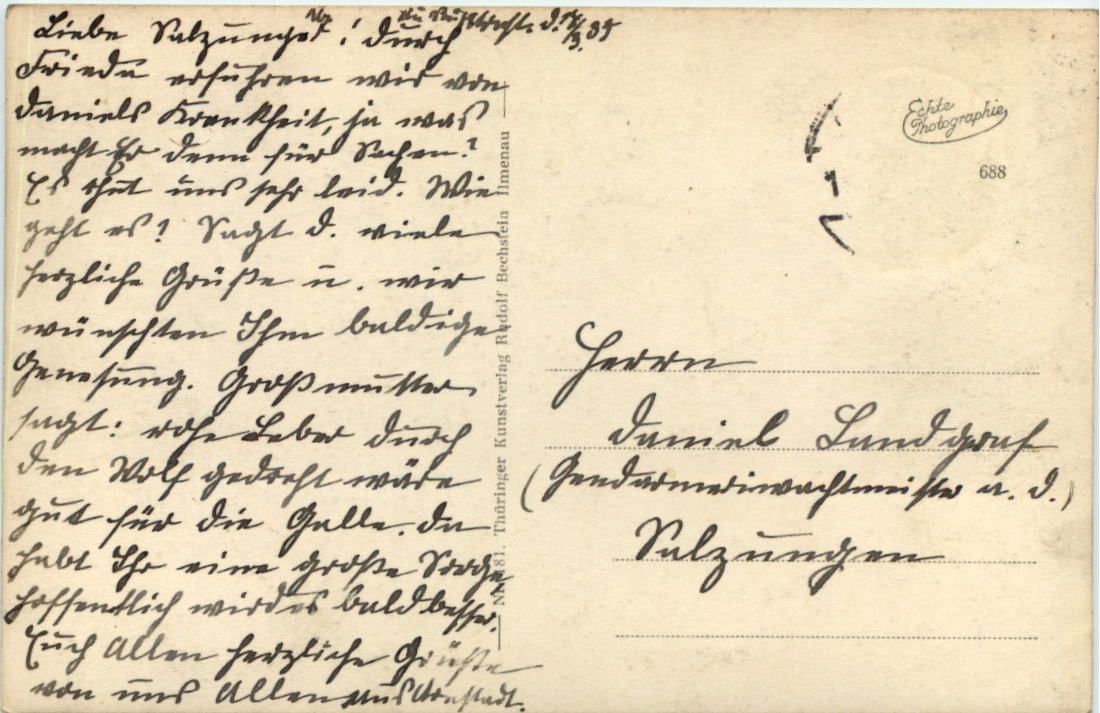 Liebe Salzunger! durch
d. 13/3. 35
Frieda erfuhren wir von
Daniels Krankheit, ja was
macht Er denn für Sachen?
Es thut uns sehr leid. Wie
geht es? Sagt D. viele
herzliche Grüße u. wir
wünschten Ihm baldige
Genesung. Großmutter
sagt: rohe Leber durch
den Wolf gedreht wäre
gut für die Galle. Da
habt Ihr eine große Sorge
hoffentlich wird es bald besser.
Euch Allen herzliche Grüße
von uns Allen aus Arnstadt.
Thüringer Kunstverlag Rudolf Bechstein Ilmenau
Echte
Photographie
688
Herrn
Daniel Landgraf
(Gendarmeriewachtmeister a. D.)
Salzungen